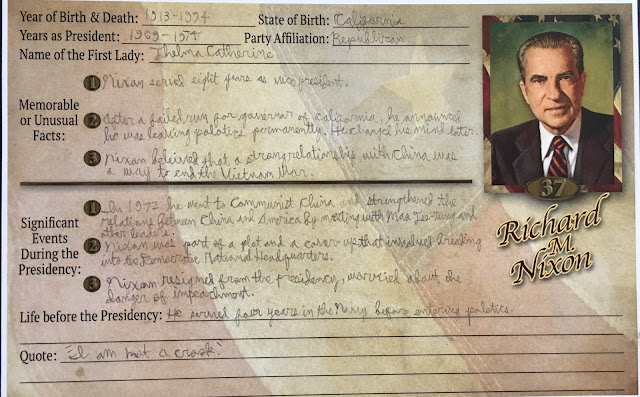 Year of Birth & Death: 1913-1994 State of Birth: California
Years as President: 1969-1974 Party Affiliation: Republican
Name of the First Lady: Thelma Catherine
Memorable or Unusual Facts:
1 Nixan served eight years as vice president.
2 After a failed run for governor of California, he announced
he was leaving polotics permanently. He changed his mind later.
3 Nixan beleived that a strong relationship with China was
a way to end the Vietnam War.
Significant Events During the Presidency:
1 In 1972 he went to Communist China and strengthened the
relations between China and America by meeting with Mao Tse-tung and
other leaders.
2 Nixan was part of a plot and a cover-up that involved breaking
into the Democratic National Headquarters.
3 Nixan resigned from the presidency, worried about the
danger of impeachment.
Life before the Presidency: He served four years in the Navy before entering polotics.
Quote: "I am not a crook."
37
Richard
M.
Nixon